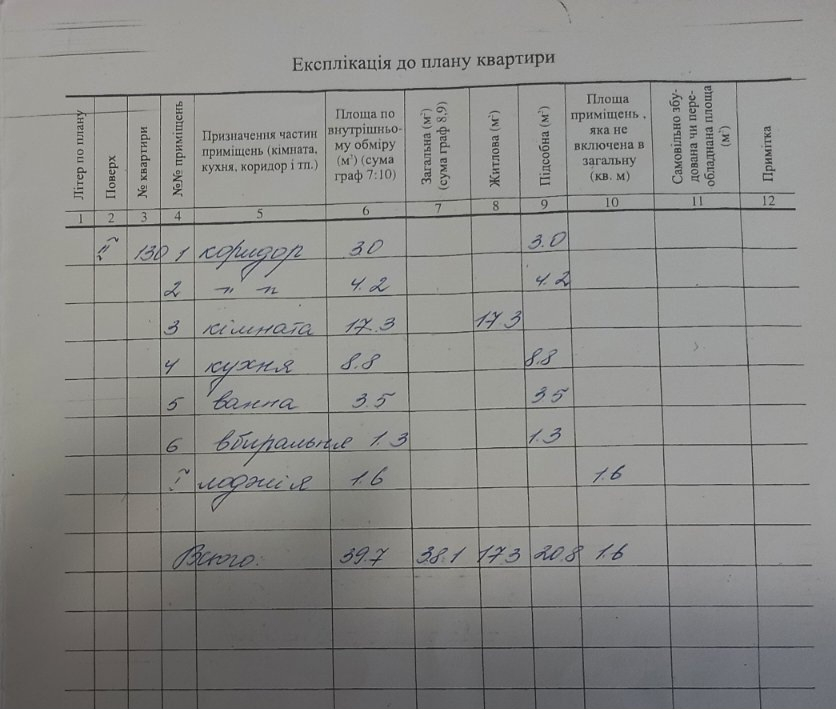 Експлікація до плану квартири
Літер по плану | Поверх | № квартири | №№ приміщень | Призначення частин приміщень (кімната, кухня, коридор і тп.) | Площа по внутрішньо-му обміру (м²) (сума граф 7:10) | Загальна (м²) (сума граф 8,9) | Житлова (м²) | Підсобна (м²) | Площа приміщень, яка не включена в загальну (кв. м) | Самовільно збу-дована чи пере-обладнана площа (м²) | Примітка
1 2 3 4 5 6 7 8 9 10 11 12
130 1 коридор 3.0 3.0
2 " " 4.2 4.2
3 кімната 17.3 17.3
4 кухня 8.8 8.8
5 ванна 3.5 3.5
6 вбиральня 1.3 1.3
I лоджія 1.6 1.6
Всього: 39.7 38.1 17.3 20.8 1.6